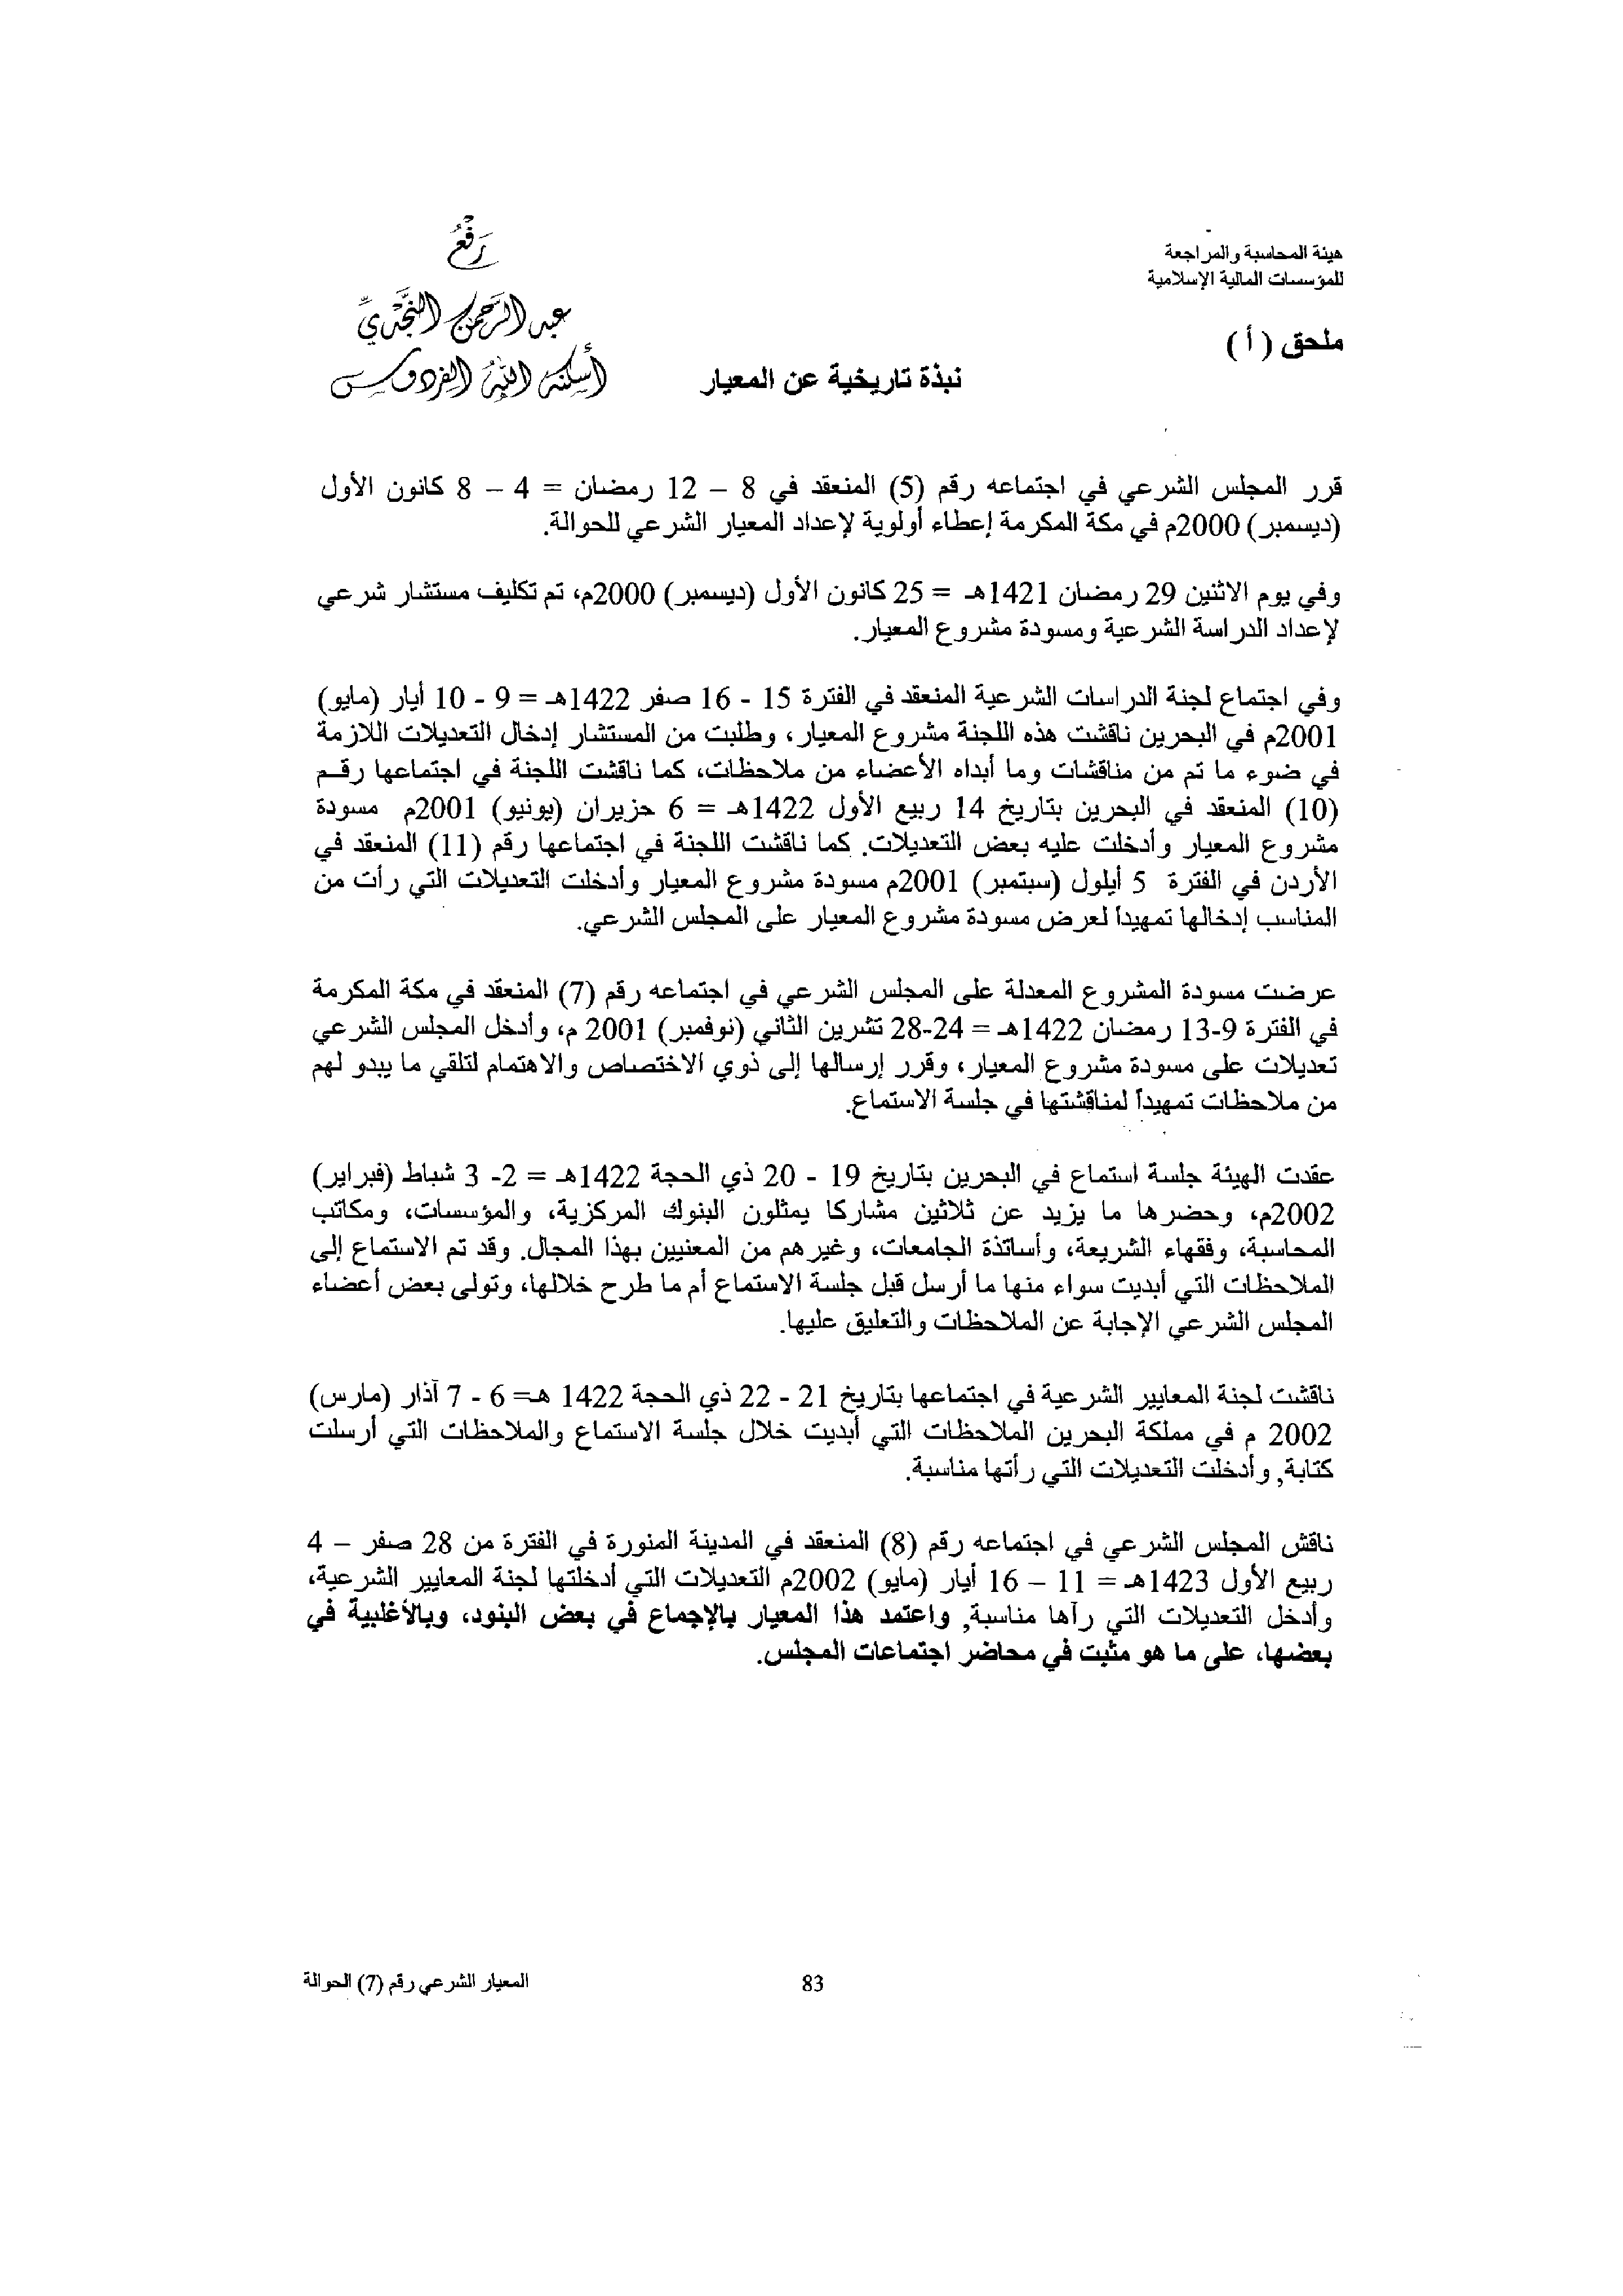 هيئة المحاسبة والمراجعة
للمؤسسات المالية الإسلامية
رَفْعُ
عبد الرحمن النَّجْدِيِّ
أسكنه الله الفردوس
ملحق (أ)
نبذة تاريخية عن المعيار
قرر المجلس الشرعي في اجتماعه رقم (5) المنعقد في 8 – 12 رمضان = 4 – 8 كانون الأول
(ديسمبر) 2000م في مكة المكرمة إعطاء أولوية لإعداد المعيار الشرعي للحوالة.
وفي يوم الاثنين 29 رمضان 1421هـ = 25 كانون الأول (ديسمبر) 2000م، تم تكليف مستشار شرعي
لإعداد الدراسة الشرعية ومسودة مشروع المعيار.
وفي اجتماع لجنة الدراسات الشرعية المنعقد في الفترة 15 - 16 صفر 1422هـ = 9 - 10 أيار (مايو)
2001م في البحرين ناقشت هذه اللجنة مشروع المعيار، وطلبت من المستشار إدخال التعديلات اللازمة
في ضوء ما تم من مناقشات وما أبداه الأعضاء من ملاحظات، كما ناقشت اللجنة في اجتماعها رقم
(10) المنعقد في البحرين بتاريخ 14 ربيع الأول 1422هـ = 6 حزيران (يونيو) 2001م مسودة
مشروع المعيار وأدخلت عليه بعض التعديلات. كما ناقشت اللجنة في اجتماعها رقم (11) المنعقد في
الأردن في الفترة 5 أيلول (سبتمبر) 2001م مسودة مشروع المعيار وأدخلت التعديلات التي رأت من
المناسب إدخالها تمهيداً لعرض مسودة مشروع المعيار على المجلس الشرعي.
عرضت مسودة المشروع المعدلة على المجلس الشرعي في اجتماعه رقم (7) المنعقد في مكة المكرمة
في الفترة 9-13 رمضان 1422هـ = 24-28 تشرين الثاني (نوفمبر) 2001 م، وأدخل المجلس الشرعي
تعديلات على مسودة مشروع المعيار، وقرر إرسالها إلى ذوي الاختصاص والاهتمام لتلقي ما يبدو لهم
من ملاحظات تمهيداً لمناقشتها في جلسة الاستماع.
عقدت الهيئة جلسة استماع في البحرين بتاريخ 19 - 20 ذي الحجة 1422هـ = 2- 3 شباط (فبراير)
2002م، وحضرها ما يزيد عن ثلاثين مشاركا يمثلون البنوك المركزية، والمؤسسات، ومكاتب
المحاسبة، وفقهاء الشريعة، وأساتذة الجامعات، وغيرهم من المعنيين بهذا المجال. وقد تم الاستماع إلى
الملاحظات التي أبديت سواء منها ما أرسل قبل جلسة الاستماع أم ما طرح خلالها، وتولى بعض أعضاء
المجلس الشرعي الإجابة عن الملاحظات والتعليق عليها.
ناقشت لجنة المعايير الشرعية في اجتماعها بتاريخ 21 - 22 ذي الحجة 1422 هـ= 6 - 7 آذار (مارس)
2002 م في مملكة البحرين الملاحظات التي أبديت خلال جلسة الاستماع والملاحظات التي أرسلت
كتابة, وأدخلت التعديلات التي رأتها مناسبة.
ناقش المجلس الشرعي في اجتماعه رقم (8) المنعقد في المدينة المنورة في الفترة من 28 صفر – 4
ربيع الأول 1423هـ = 11 – 16 أيار (مايو) 2002م التعديلات التي أدخلتها لجنة المعايير الشرعية،
وأدخل التعديلات التي رآها مناسبة, واعتمد هذا المعيار بالإجماع في بعض البنود، وبالأغلبية في
بعضها، على ما هو مثبت في محاضر اجتماعات المجلس.
83
المعيار الشرعي رقم (7) الحوالة